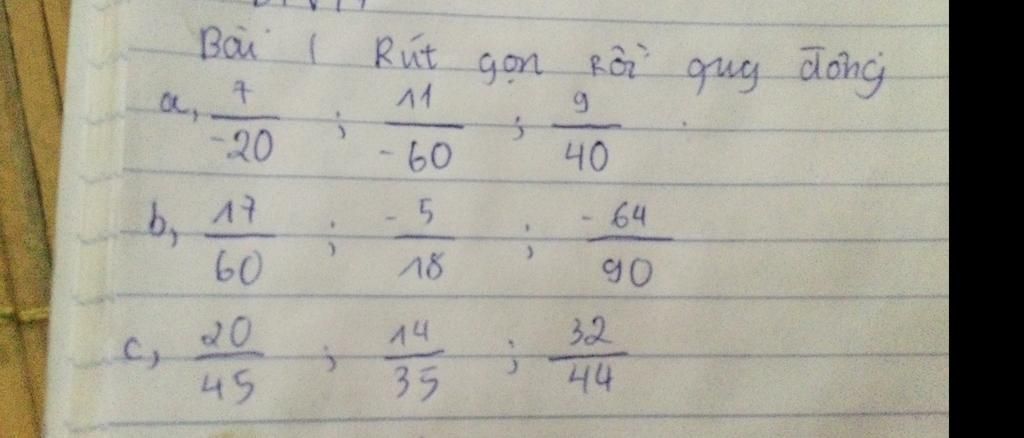 Bài 1 Rút gọn rồi quy đồng
a, 7/-20 ; 11/-60 ; 9/40
b, 17/60 ; -5/18 ; -64/90
c, 20/45 ; 14/35 ; 32/44